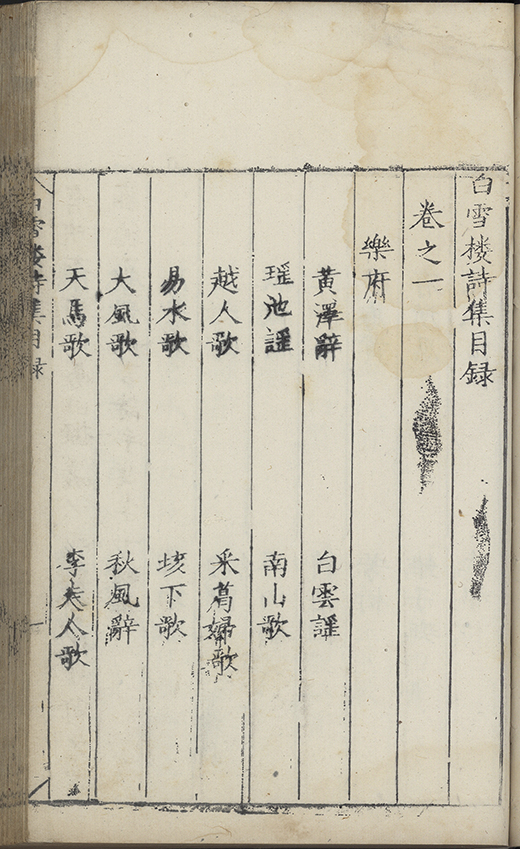 白雪樓詩集目録
卷之一
樂府
黃澤辭 白雲謡
瑶池謡 南山歌
越人歌 采葛婦歌
易水歌 垓下歌
大風歌 秋風辭
天馬歌 李夫人歌
白雪樓詩集目録